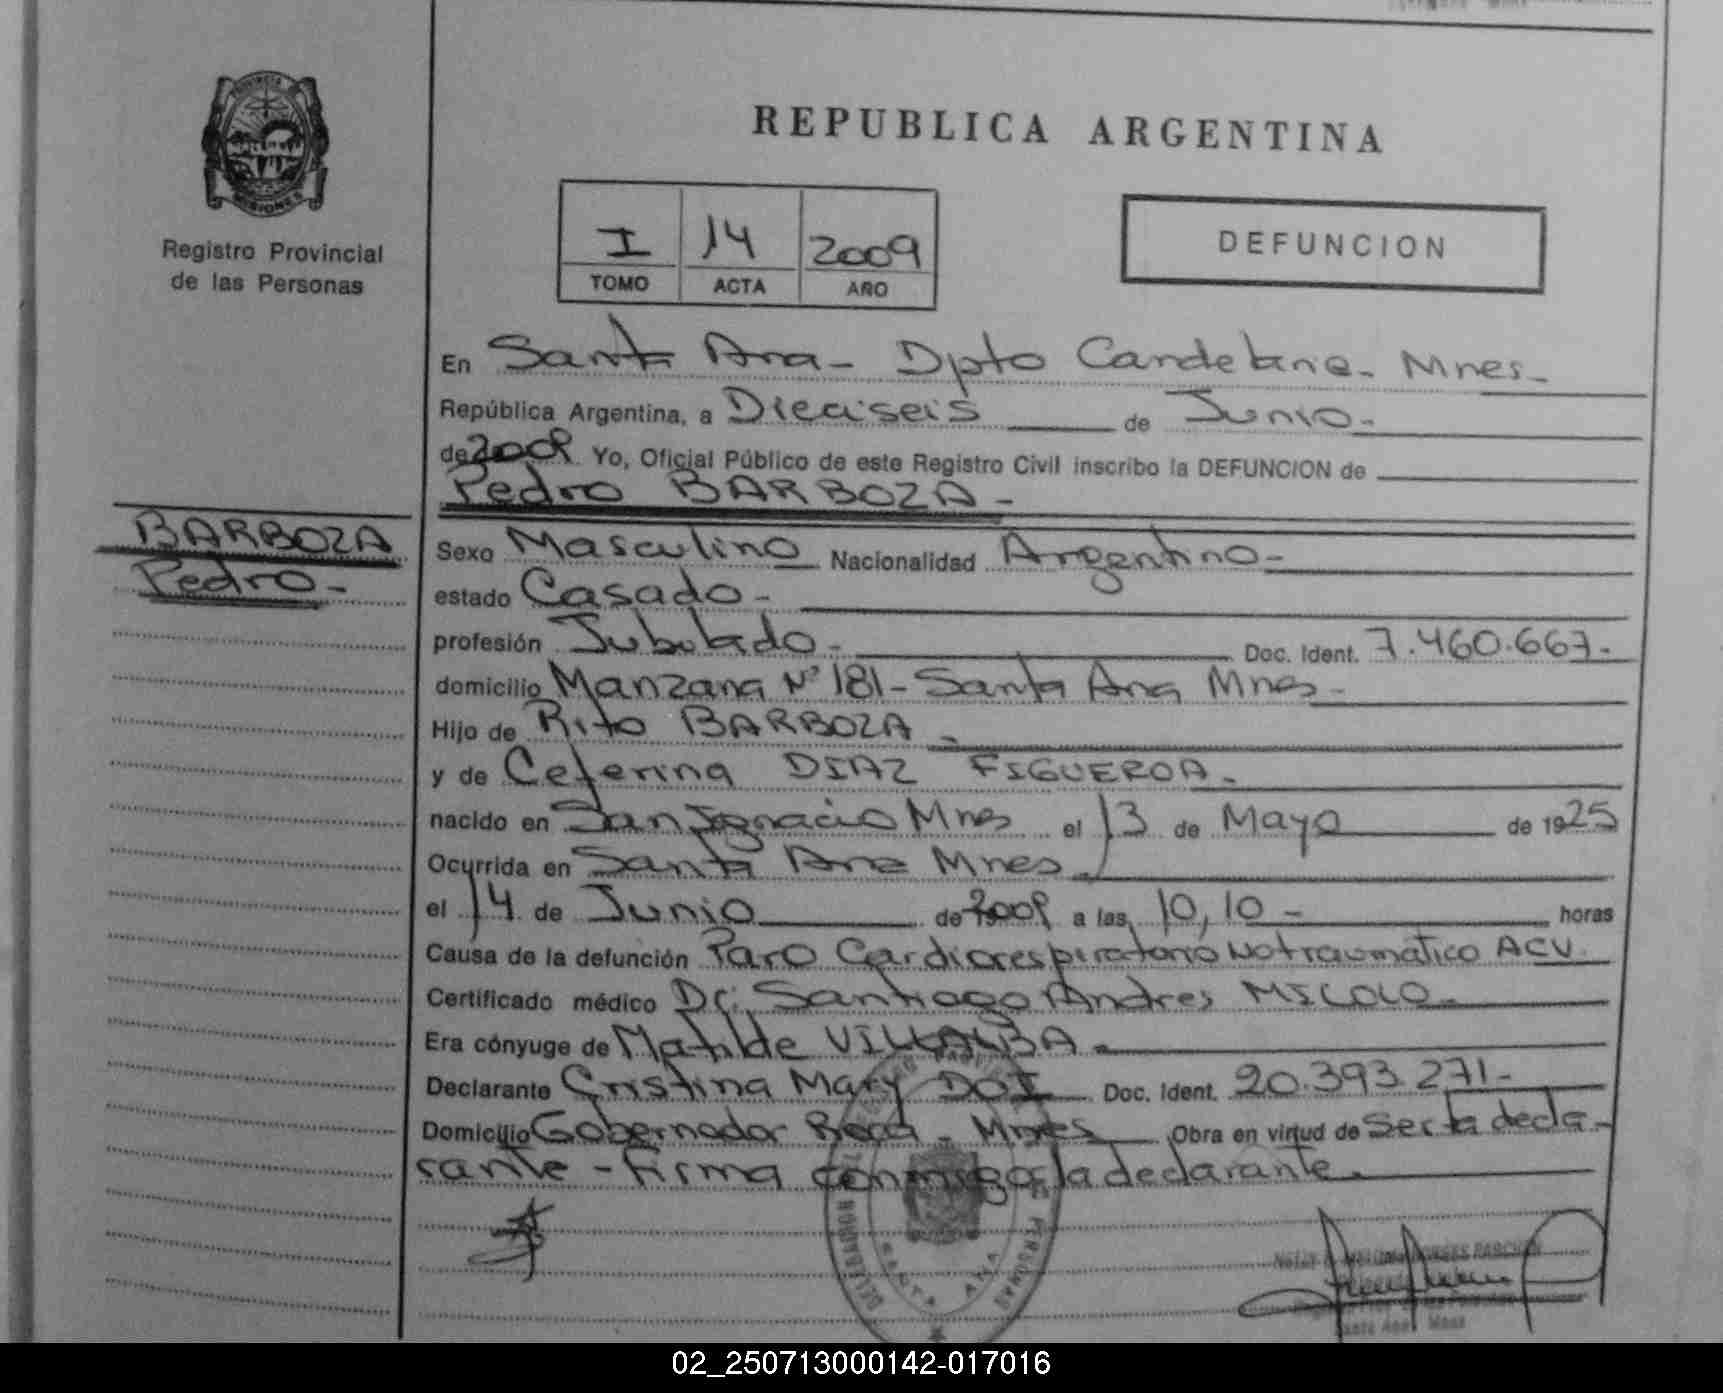 PROVINCIA
MISIONES
Registro Provincial
de las Personas
REPUBLICA ARGENTINA
I 14 2009
TOMO ACTA AÑO
DEFUNCION
En Santa Ana - Dpto Candelaria - Mnes -
República Argentina, a Dieciseis de Junio -
de 2009 Yo, Oficial Público de este Registro Civil inscribo la DEFUNCION de
Pedro BARBOZA -
BARBOZA
Pedro -
Sexo Masculino Nacionalidad Argentino -
estado Casado -
profesión Jubilado - Doc. Ident. 7.460.667 -
domicilio Manzana Nº 181 - Santa Ana Mnes -
Hijo de Rito BARBOZA -
y de Ceferina DIAZ FIGUEROA -
nacido en San Ignacio Mnes el 13 de Mayo de 1925
Ocurrida en Santa Ana Mnes
el 14 de Junio de 2009 a las 10,10 - horas
Causa de la defunción Paro Cardiorespiratorio No traumático ACV.
Certificado médico Dr. Santiago Andres MICOLO -
Era cónyuge de Matilde VILLALBA -
Declarante Cristina Mary DOI Doc. Ident. 20.393.271 -
Domicilio Gobernador Roca - Mnes Obra en virtud de Ser la decla -
rante - firma conmigo la declarante.
SANTA ANA
02_250713000142-017016